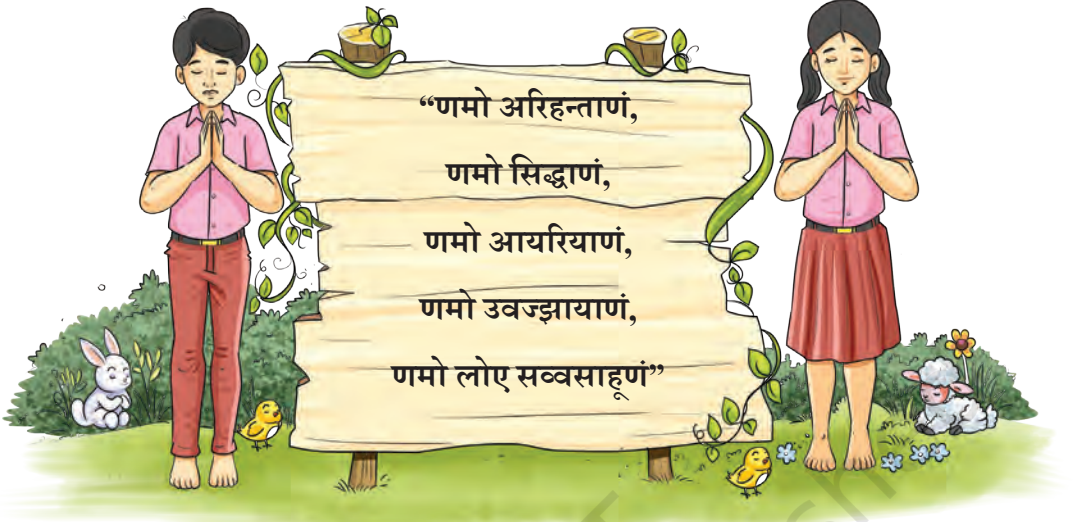 “णमो अरिहन्ताणं,
णमो सिद्धाणं,
णमो आयरियाणं,
णमो उवज्झायाणं,
णमो लोए सव्वसाहूणं”